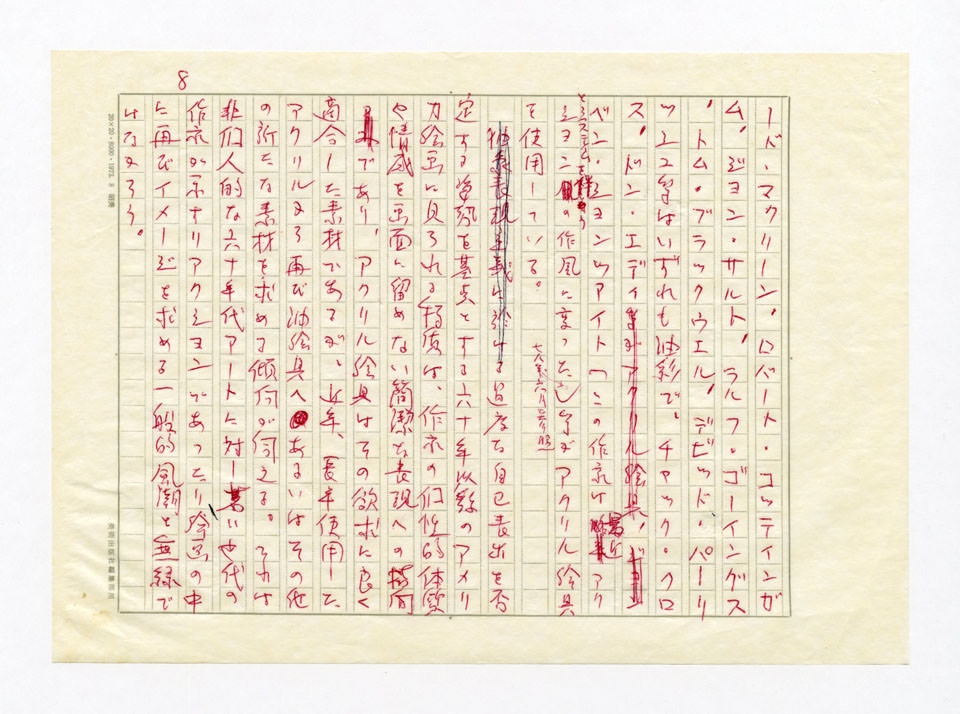 8
ード・マクリーン、ロバート・コッティンガ
ム、ジョン・サルト、ラルフ・ゴーイングス
、トム・ブラックウエル、デビッド・パーリ
ツェス等はいずれも油彩で、チャック・クロ
ス、ドン・エディ
ベン・ションツアイト(この作家は最近アク
ション の作風に変った)等がアクリル絵具
を使用している。
過度な自己表出を否
定する姿勢を基点とする六十年以後のアメリ
カ絵画に見られる特質は、作家の個性的体質
や情感を画面に留めない簡潔な表現への
であり、アクリル絵具はその欲求に良く
適合した素材であるが、近年、長年使用した
アクリルから再び油絵具へあるいはその他
の新たな素材を求める傾向が伺える。それは
非個人的な六十年代アートに対し若い世代の
作家が示すリアクションであったり絵画の中
に再びイメージを求める一般的風潮と無縁で
はなかろう。
20×20